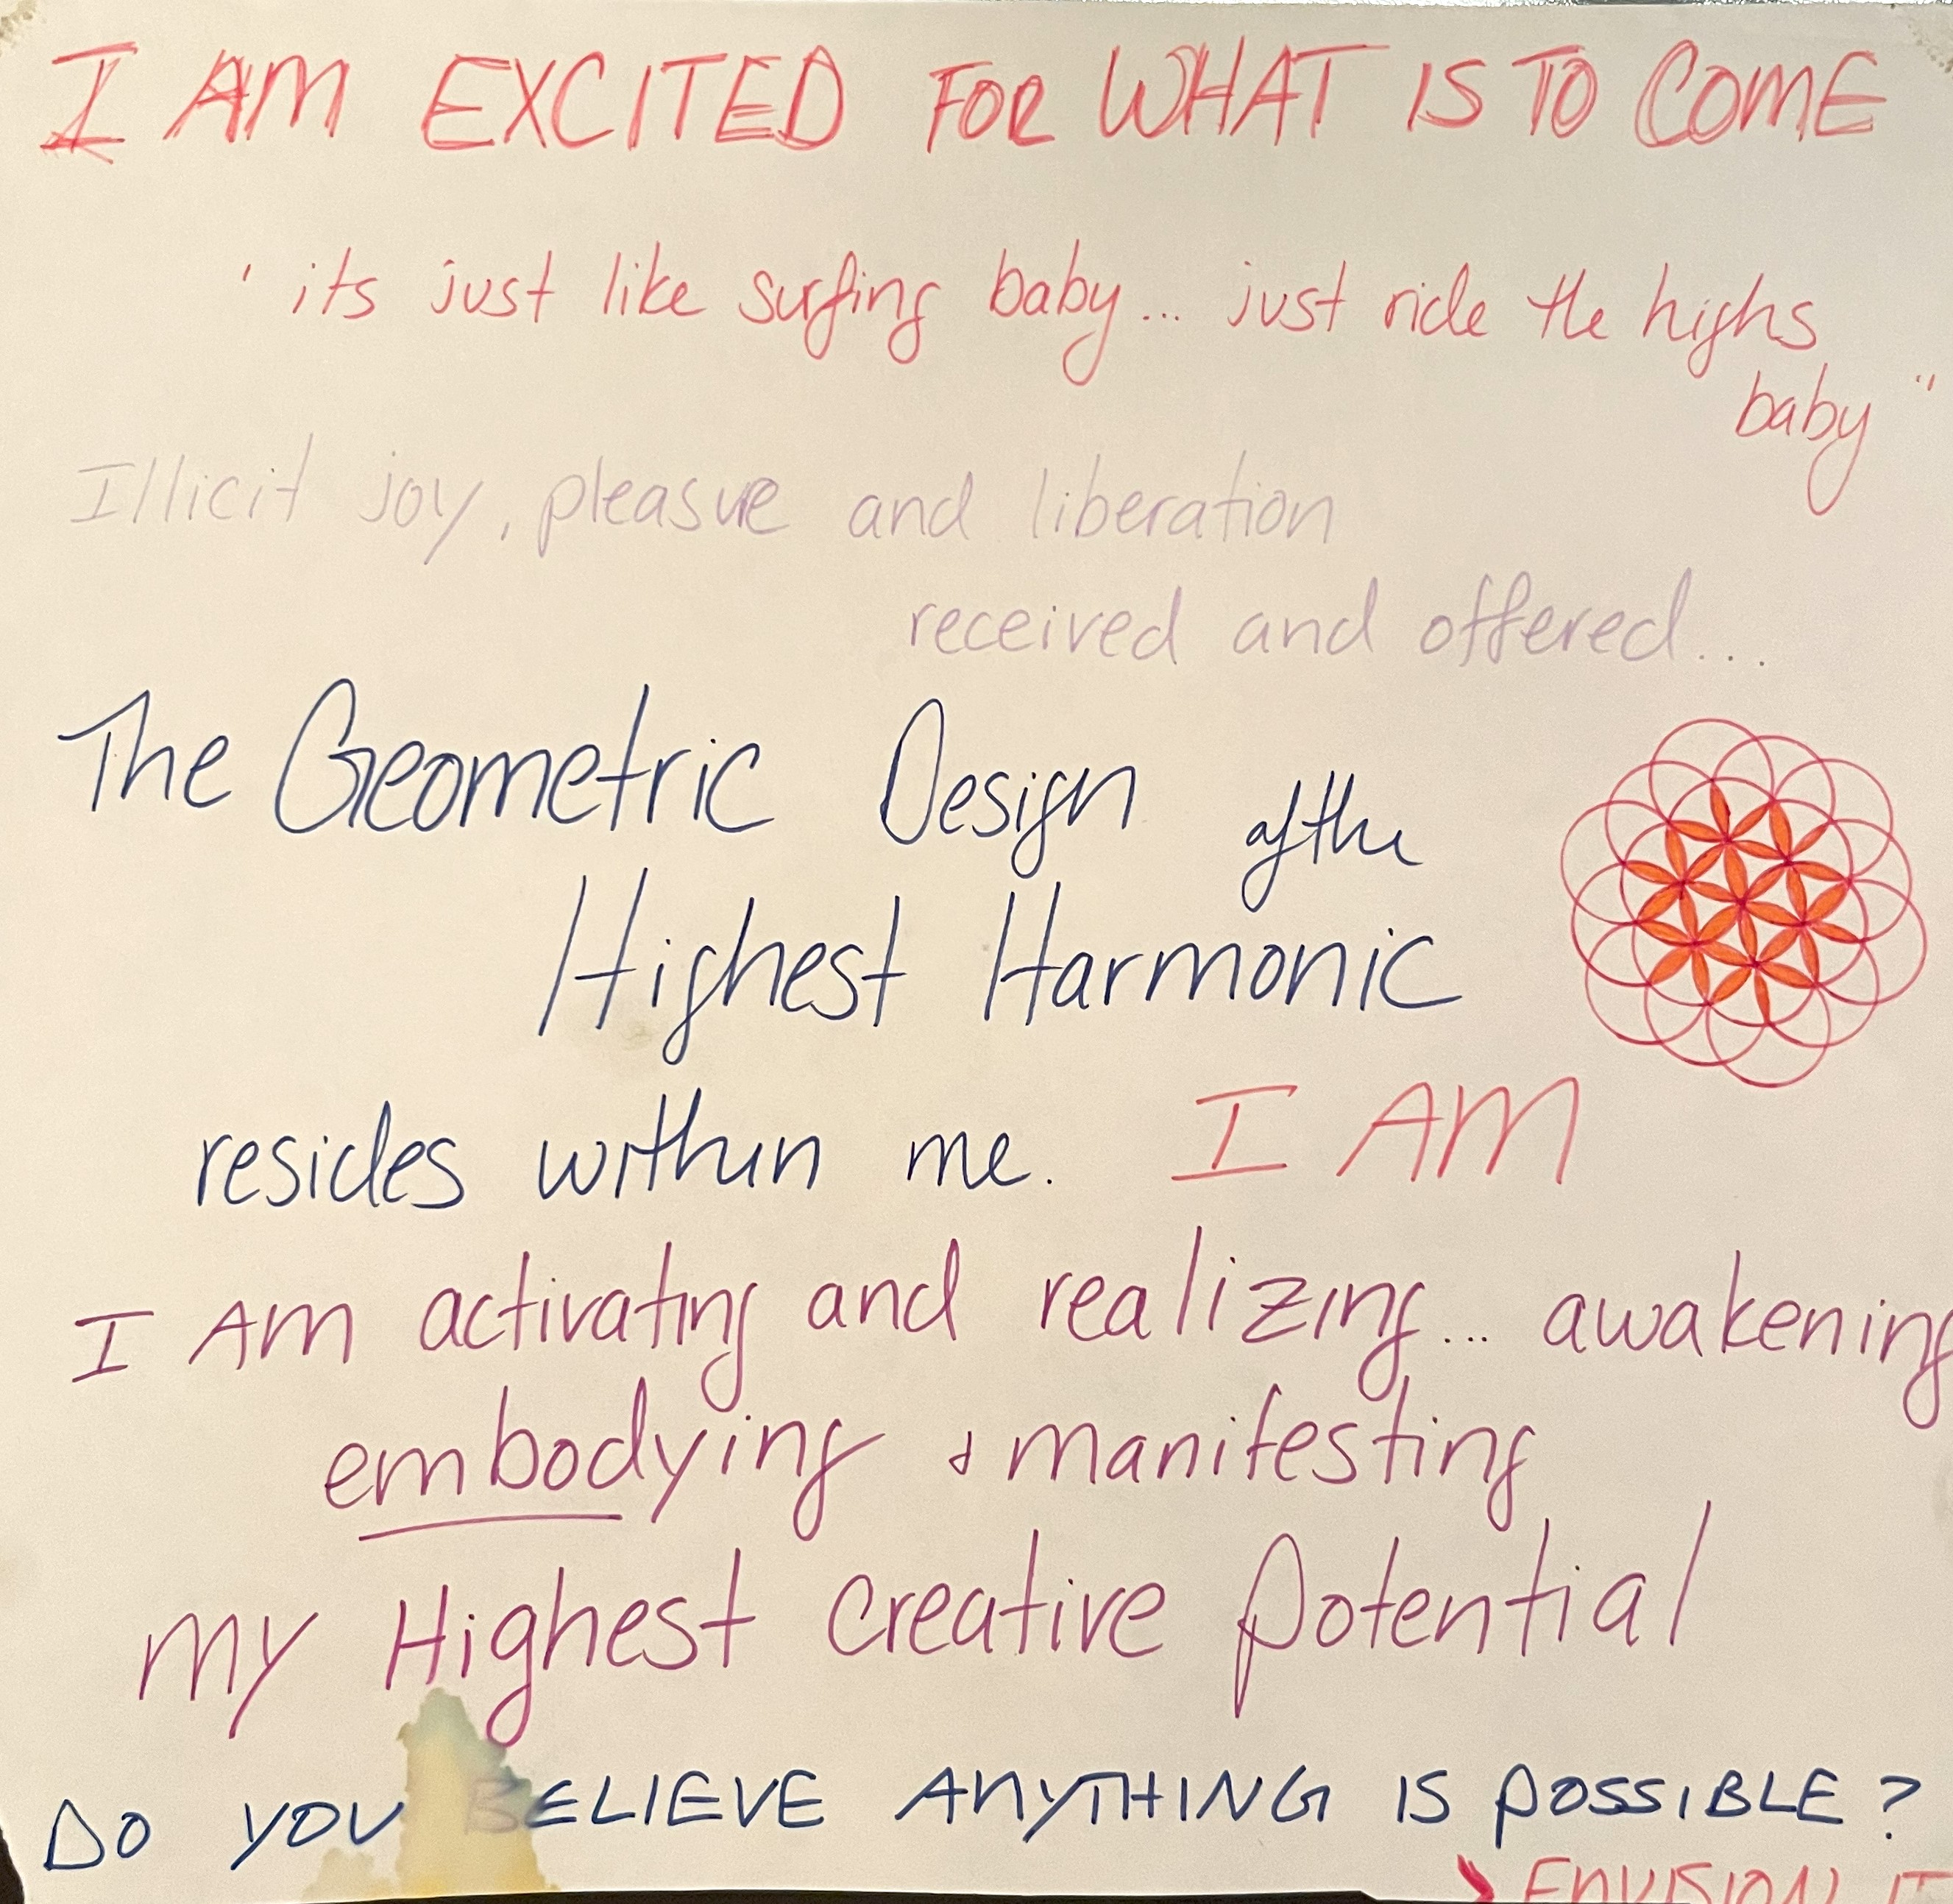 I AM EXCITED FOR WHAT IS TO COME
' its just like surfing baby... just ride the highs
baby "
Illicit joy, pleasure and liberation
received and offered...
The Geometric Design of the
Highest Harmonic
resides within me. I AM
I AM activating and realizing... awakening
embodying & manifesting
my Highest Creative Potential
DO YOU BELIEVE ANYTHING IS POSSIBLE?
ENVISION IT